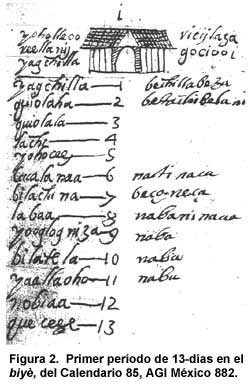 i
yoholleoo
reellanij
yagchilla
vicijlaga
gociooi
yagchilla — 1 bethillabeza
quiolaha — 2
quiolala — 3
lachi — 4
yohocee — 5
lacalanaa — 6 nasti naca
bilachina — 7 beconeca
labaa — 8
yooglog niza — 9 naba
bilatela — 10 nabu
yaallaoho — 11 nabu
yobiaa — 12
quecege — 13
Figura 2. Primer período de 13-días en el
biyè, del Calendario 85, AGI México 882.